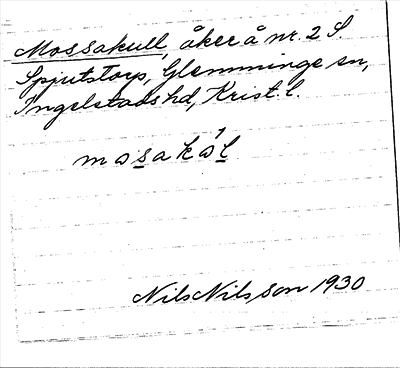 Mossakull, åker å nr. 2 S.
Spjutstorp, Glemminge sn,
Ingelstads hd, Krist. l.
mosakål
Nils Nilsson 1930